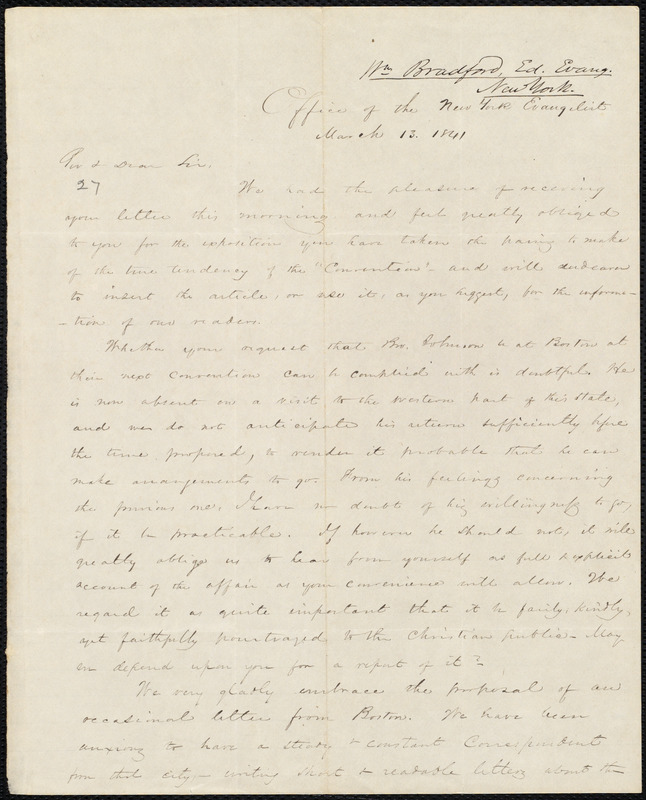 Wm Bradford, Ed. Evang.
New York.
Office of the New York Evangelist
March 13. 1841
Rev & Dear Sir,
27
We had the pleasure of receiving
your letter this morning, and feel greatly obliged
to you for the exposition you have taken the pains to make
of the true tendency of the "Convention" - and will endeavor
to insert the article, or use it, as you suggest, for the informa-
-tion of our readers.
Whether your request that Bro. Johnson be at Boston at
their next Convention can be complied with is doubtful. He
is now absent on a visit to the Western part of this State,
and we do not anticipate his return sufficiently before
the time proposed, to render it probable that he can
make arrangements to go. From his feelings concerning
the previous one, I have no doubt of his willingness to go,
if it be practicable. If however he should not, it will
greatly oblige us to hear from yourself as full & explicit
account of the affair as your convenience will allow. We
regard it as quite important that it be fairly, kindly,
yet faithfully pourtrayed to the Christian public - May
we depend upon you for a report of it?
We very gladly embrace the proposal of an
occasional letter from Boston. We have been
anxious to have a steady & constant Correspondent
from that city - writing short & readable letters about the